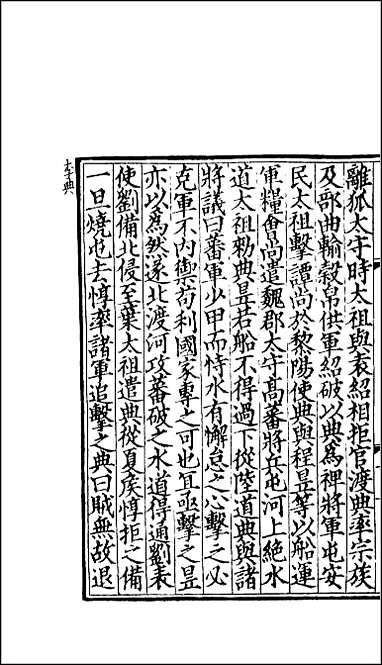 離狐太守時太祖與袁紹相拒官渡典率宗族
及部曲輸穀帛供軍紹破以典為裨將軍屯安
民太祖擊譚尚於黎陽使典與程昱等以船運
軍糧會尚遣魏郡太守高蕃將兵屯河上絶水
道太祖勑典昱若船不得過下從陸道典與諸
將議曰蕃軍少甲而恃水有懈怠之心擊之必
克軍不内輿苟利國家專之可也宜亟擊之昱
亦以為然遂北渡河攻蕃破之水道得通劉表
使劉備北侵至葉太祖遣典從夏侯惇拒之備
一旦燒屯去惇率諸軍追擊之典曰賊無故退
李典